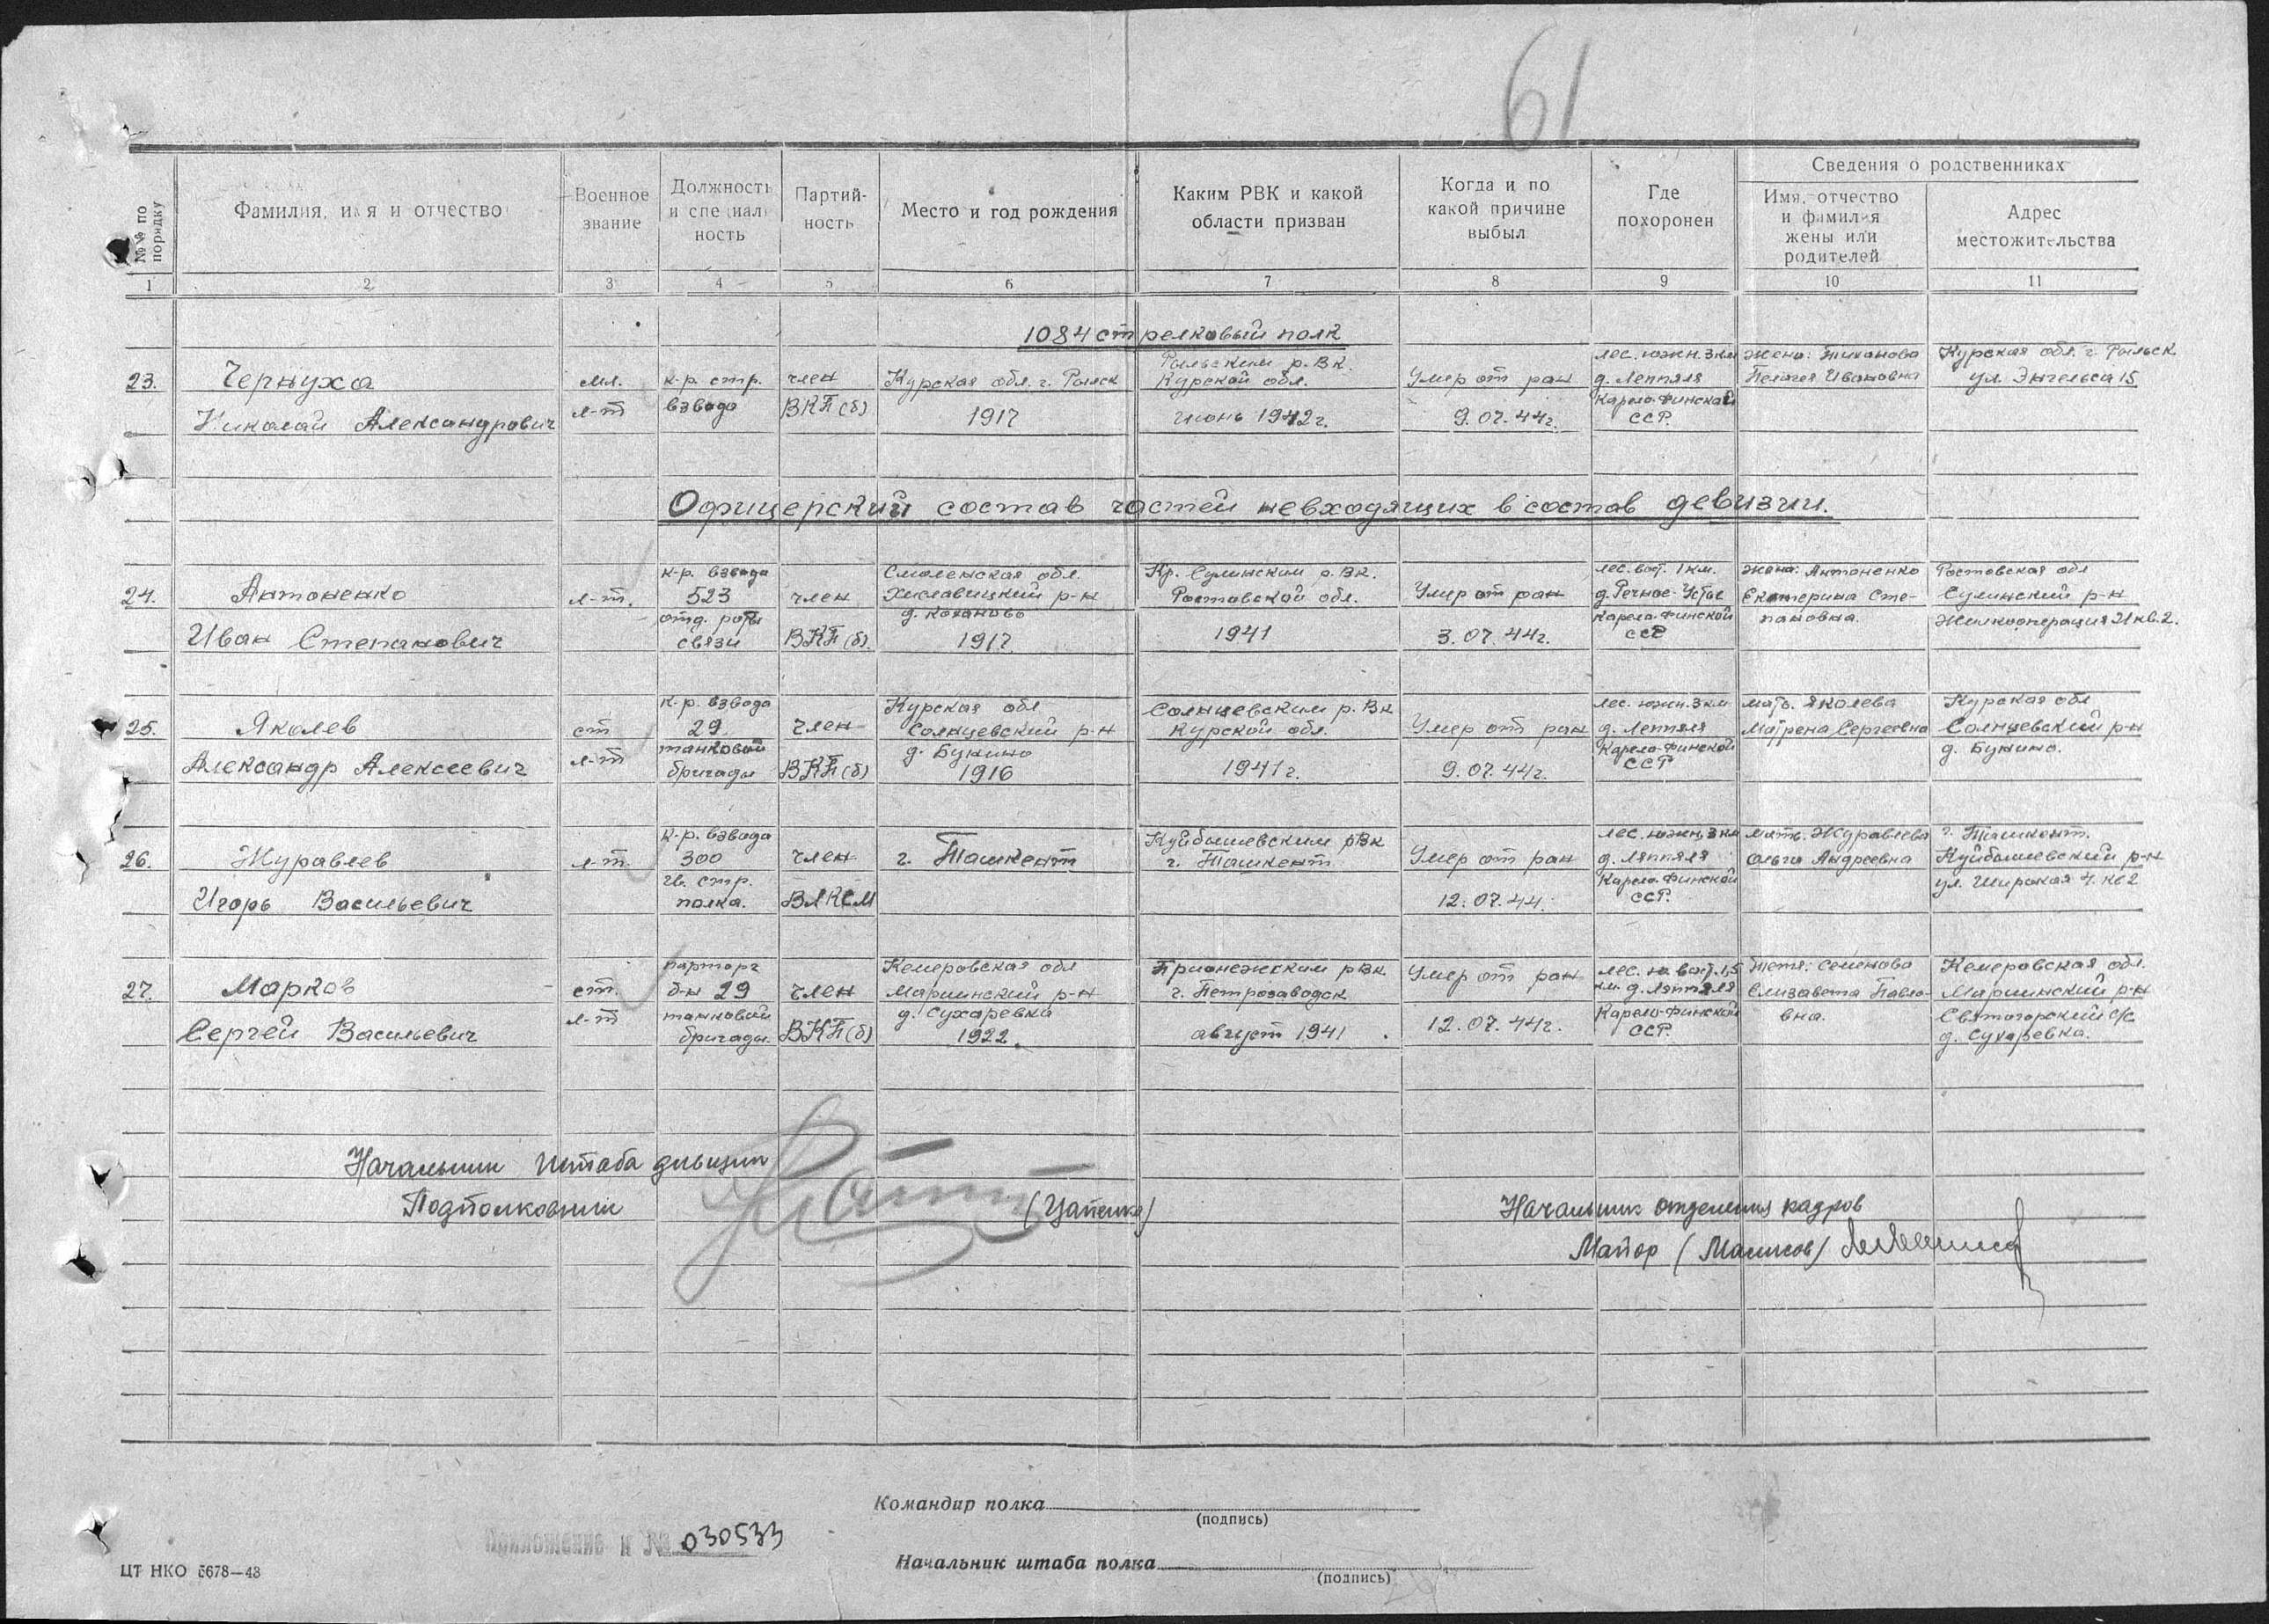 61
№№ по порядку
Фамилия, имя и отчество
Военное звание
Должность и специальность
Партийность
Место и год рождения
Каким РВК и какой области призван
Когда и по какой причине выбыл
Где похоронен
Сведения о родственниках
Имя, отчество и фамилия жены или родителей
Адрес местожительства
1 2 3 4 5 6 7 8 9 10 11
1084 стрелковый полк
23. Чернуха Николай Александрович
мл. л-т
к-р. стр. взвода
член ВКП(б)
Курская обл. г. Рыльск 1917
Рыльским р.Вк. Курской обл. июнь 1942г.
Умер от ран 9.07.44г.
лес. южн. 3км д. Леппяля Карело-Финской ССР.
жена: Тиханова Пелагея Ивановна
Курская обл. г. Рыльск ул. Энгельса 15
Офицерский состав частей невходящих в состав девизии.
24. Антоненко Иван Степанович
л-т.
к-р. взвода 523 отд. роты связи
член ВКП(б).
Смоленская обл. Хиславицкий р-н д. Коханово 1917
Кр. Сулинским р.Вк. Ростовской обл. 1941
Умер от ран 3.07.44г.
лес. вост. 1км. д. Речное-Устье Карело-Финской ССР
жена: Антоненко Екатерина Степановна.
Ростовская обл Сулинский р-н Жилкооперация 21 кв.2.
25. Яколев Александр Алексеевич
ст л-т
к-р. взвода 29 танковой бригады
член ВКП(б)
Курская обл Солнцевский р-н д. Бунино 1916
Солнцевским р.Вк Курской обл. 1941г.
Умер от ран 9.07.44г.
лес. южн. 3км д. Леппяля Карело-Финской ССР
мать. Яколева Матрена Сергеевна
Курская обл Солнцевский р-н д. Бунино.
26. Журавлев Игорь Васильевич
л-т.
к-р. взвода 300 гв. стр. полка.
член ВЛКСМ
г. Ташкент
Куйбышевским рВк г. Ташкент
Умер от ран 12.07.44.
лес. южн. 3км д. Ляппяля Карело-Финской ССР.
мать. Журавлева Ольга Андреевна
г. Ташкент. Куйбышевский р-н ул. Широкая 4. кв 2
27. Марков Сергей Васильевич
ст. л-т
парторг б-н 29 танковой бригады.
член ВКП(б)
Кемеровская обл Мариинский р-н д. Сухаревка 1922.
Прионежским рВк г. Петрозаводск август 1941
Умер от ран 12.07.44г.
лес. ю. вост. 1,5 км. д. Ляппяля Карело-Финской ССР.
тетя: Семенова Елизавета Павловна.
Кемеровская обл. Мариинский р-н Святогорский с/с д. Сухаревка.
Начальник штаба дивизии
Подполковник (Цапенко)
Начальник отделения кадров
Майор
Командир полка
(подпись)
Приложение к № 030533
Начальник штаба полка
(подпись)
ЦТ НКО 6678—43